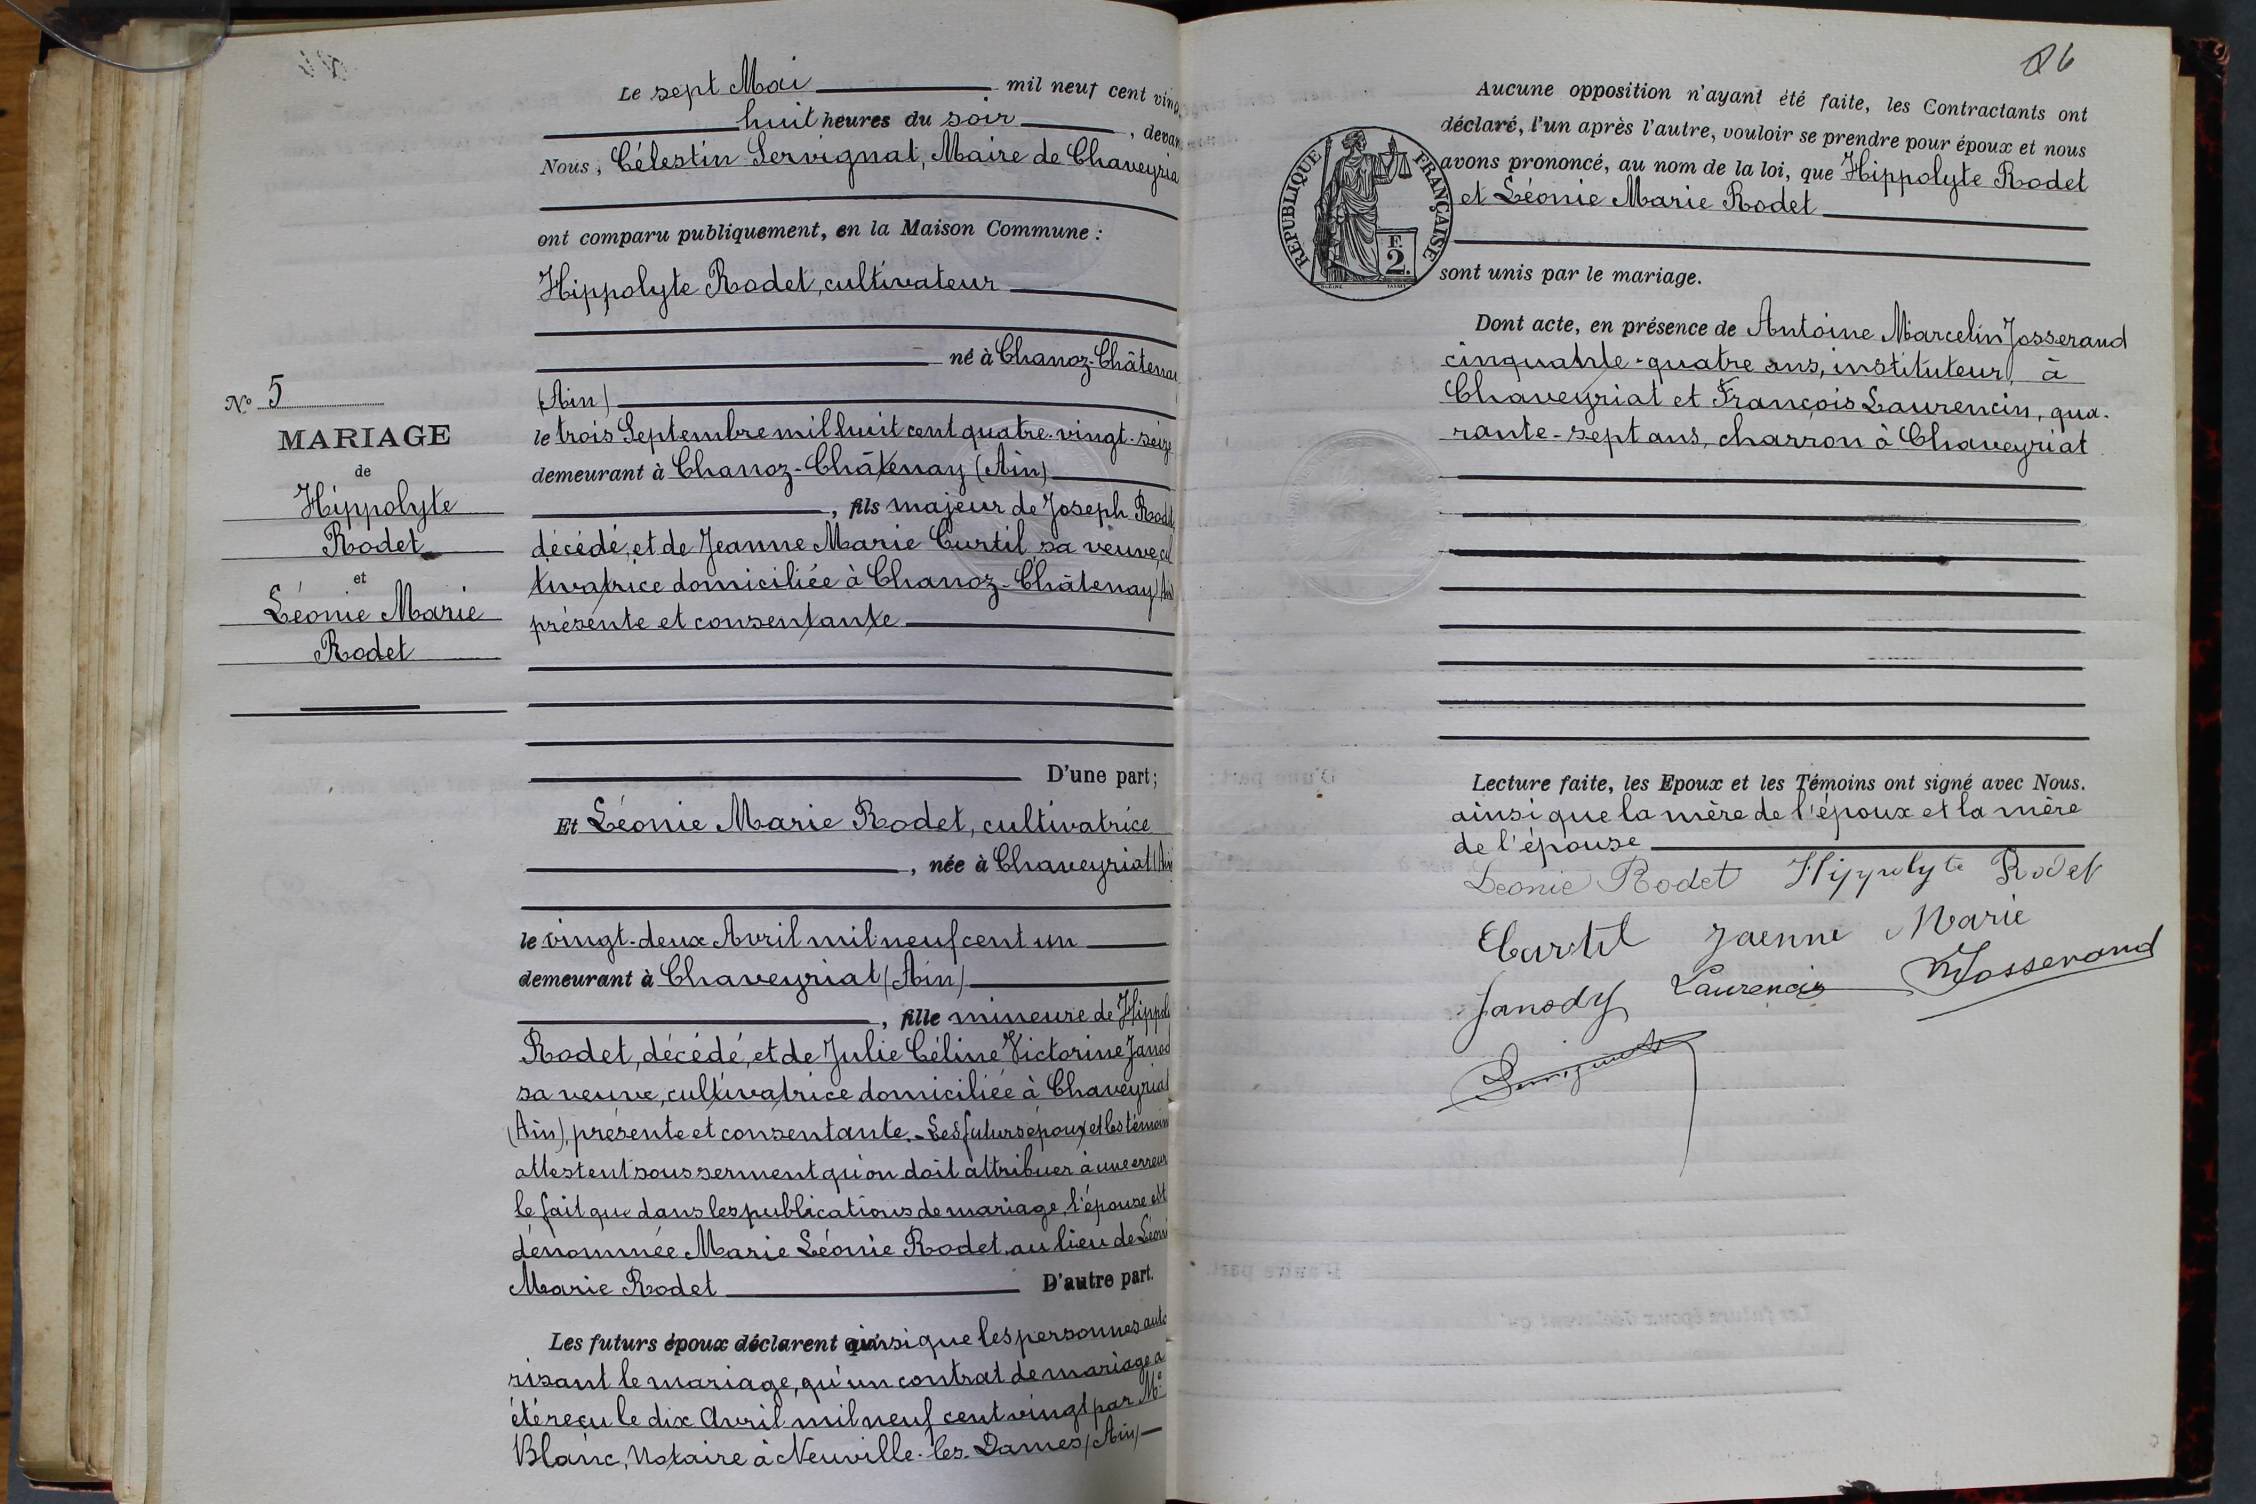 Le sept Mai mil neuf cent ving
huit heures du soir, devan
Nous, Célestin Servignat, Maire de Chaveyria
ont comparu publiquement, en la Maison Commune :
Hippolyte Rodet, cultivateur
né à Chanoz-Châtenay
(Ain)
le trois Septembre mil huit cent quatre-vingt-seize
demeurant à Chanoz-Châtenay (Ain)
, fils majeur de Joseph Rodet
décédé, et de Jeanne Marie Curtil, sa veuve, cul
tivatrice domiciliée à Chanoz-Châtenay (Ain)
présente et consentante
D'une part;
N° 5
MARIAGE
de
Hippolyte
Rodet
et
Léonie Marie
Rodet
Et Léonie Marie Rodet, cultivatrice
, née à Chaveyriat (Ain
le vingt-deux Avril mil neuf cent un
demeurant à Chaveyriat (Ain)
, fille mineure de Hippol
Rodet, décédé, et de Julie Céline Victorine Janod
sa veuve, cultivatrice domiciliée à Chaveyriat
(Ain), présente et consentante. - Les futurs époux et les témoin
attestent sous serment qu'on doit attribuer à une erreur
le fait que dans les publications de mariage, l'épouse est
dénommée Marie Léonie Rodet, au lieu de Léoni
Marie Rodet D'autre part.
Les futurs époux déclarent ainsi que les personnes auto
risant le mariage, qu'un contrat de mariage a
été reçu le dix Avril mil neuf cent vingt par Me
Blanc, Notaire à Neuville-les-Dames (Ain)
86
Aucune opposition n'ayant été faite, les Contractants ont
déclaré, l'un après l'autre, vouloir se prendre pour époux et nous
avons prononcé, au nom de la loi, que Hippolyte Rodet
et Léonie Marie Rodet
sont unis par le mariage.
RÉPUBLIQUE FRANÇAISE
F.
2.
Dont acte, en présence de Antoine Marcelin Josserand
cinquante-quatre ans, instituteur, à
Chaveyriat et François Laurencin, qua-
rante-sept ans, charron à Chaveyriat
Lecture faite, les Epoux et les Témoins ont signé avec Nous.
ainsi que la mère de l'époux et la mère
de l'épouse
Leonie Rodet Hippolyte Rodet
Curtil Jaenne Marie
Janody Laurencin MJosserand
Servignat